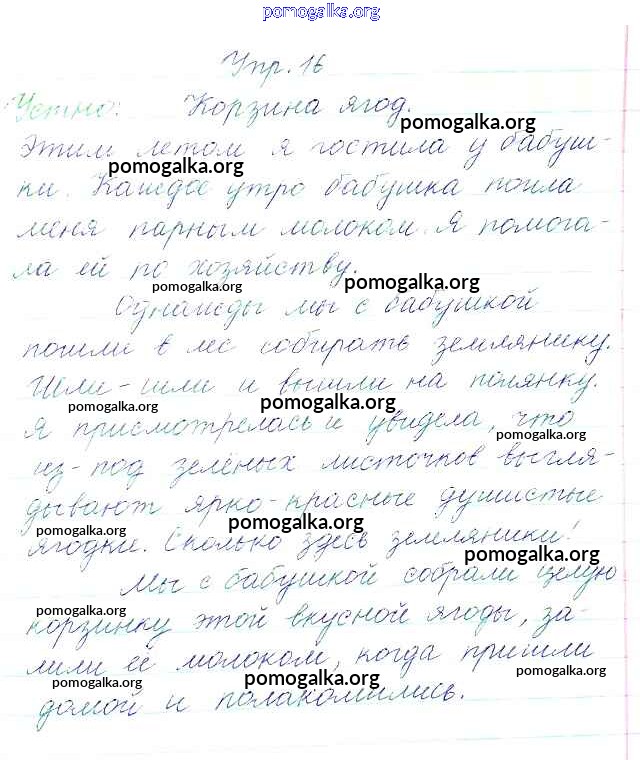 pomogalka.org
Упр. 16
Устно: Корзина ягод.
pomogalka.org
Этим летом я гостила у бабуш-
pomogalka.org
ки. Каждое утро бабушка поила
меня парным молоком. Я помога-
ла ей по хозяйству.
pomogalka.org pomogalka.org
Однажды мы с бабушкой
пошли в лес собирать землянику.
Шли-шли и вышли на полянку.
pomogalka.org pomogalka.org
Я присмотрелась и увидела, что
pomogalka.org
из-под зелёных листочков выгля-
дывают ярко-красные душистые
pomogalka.org pomogalka.org
ягодки. Сколько здесь земляники!
pomogalka.org
Мы с бабушкой собрали целую
pomogalka.org pomogalka.org
корзинку этой вкусной ягоды, за-
лили её молоком, когда пришли
pomogalka.org pomogalka.org pomogalka.org
домой и полакомились.